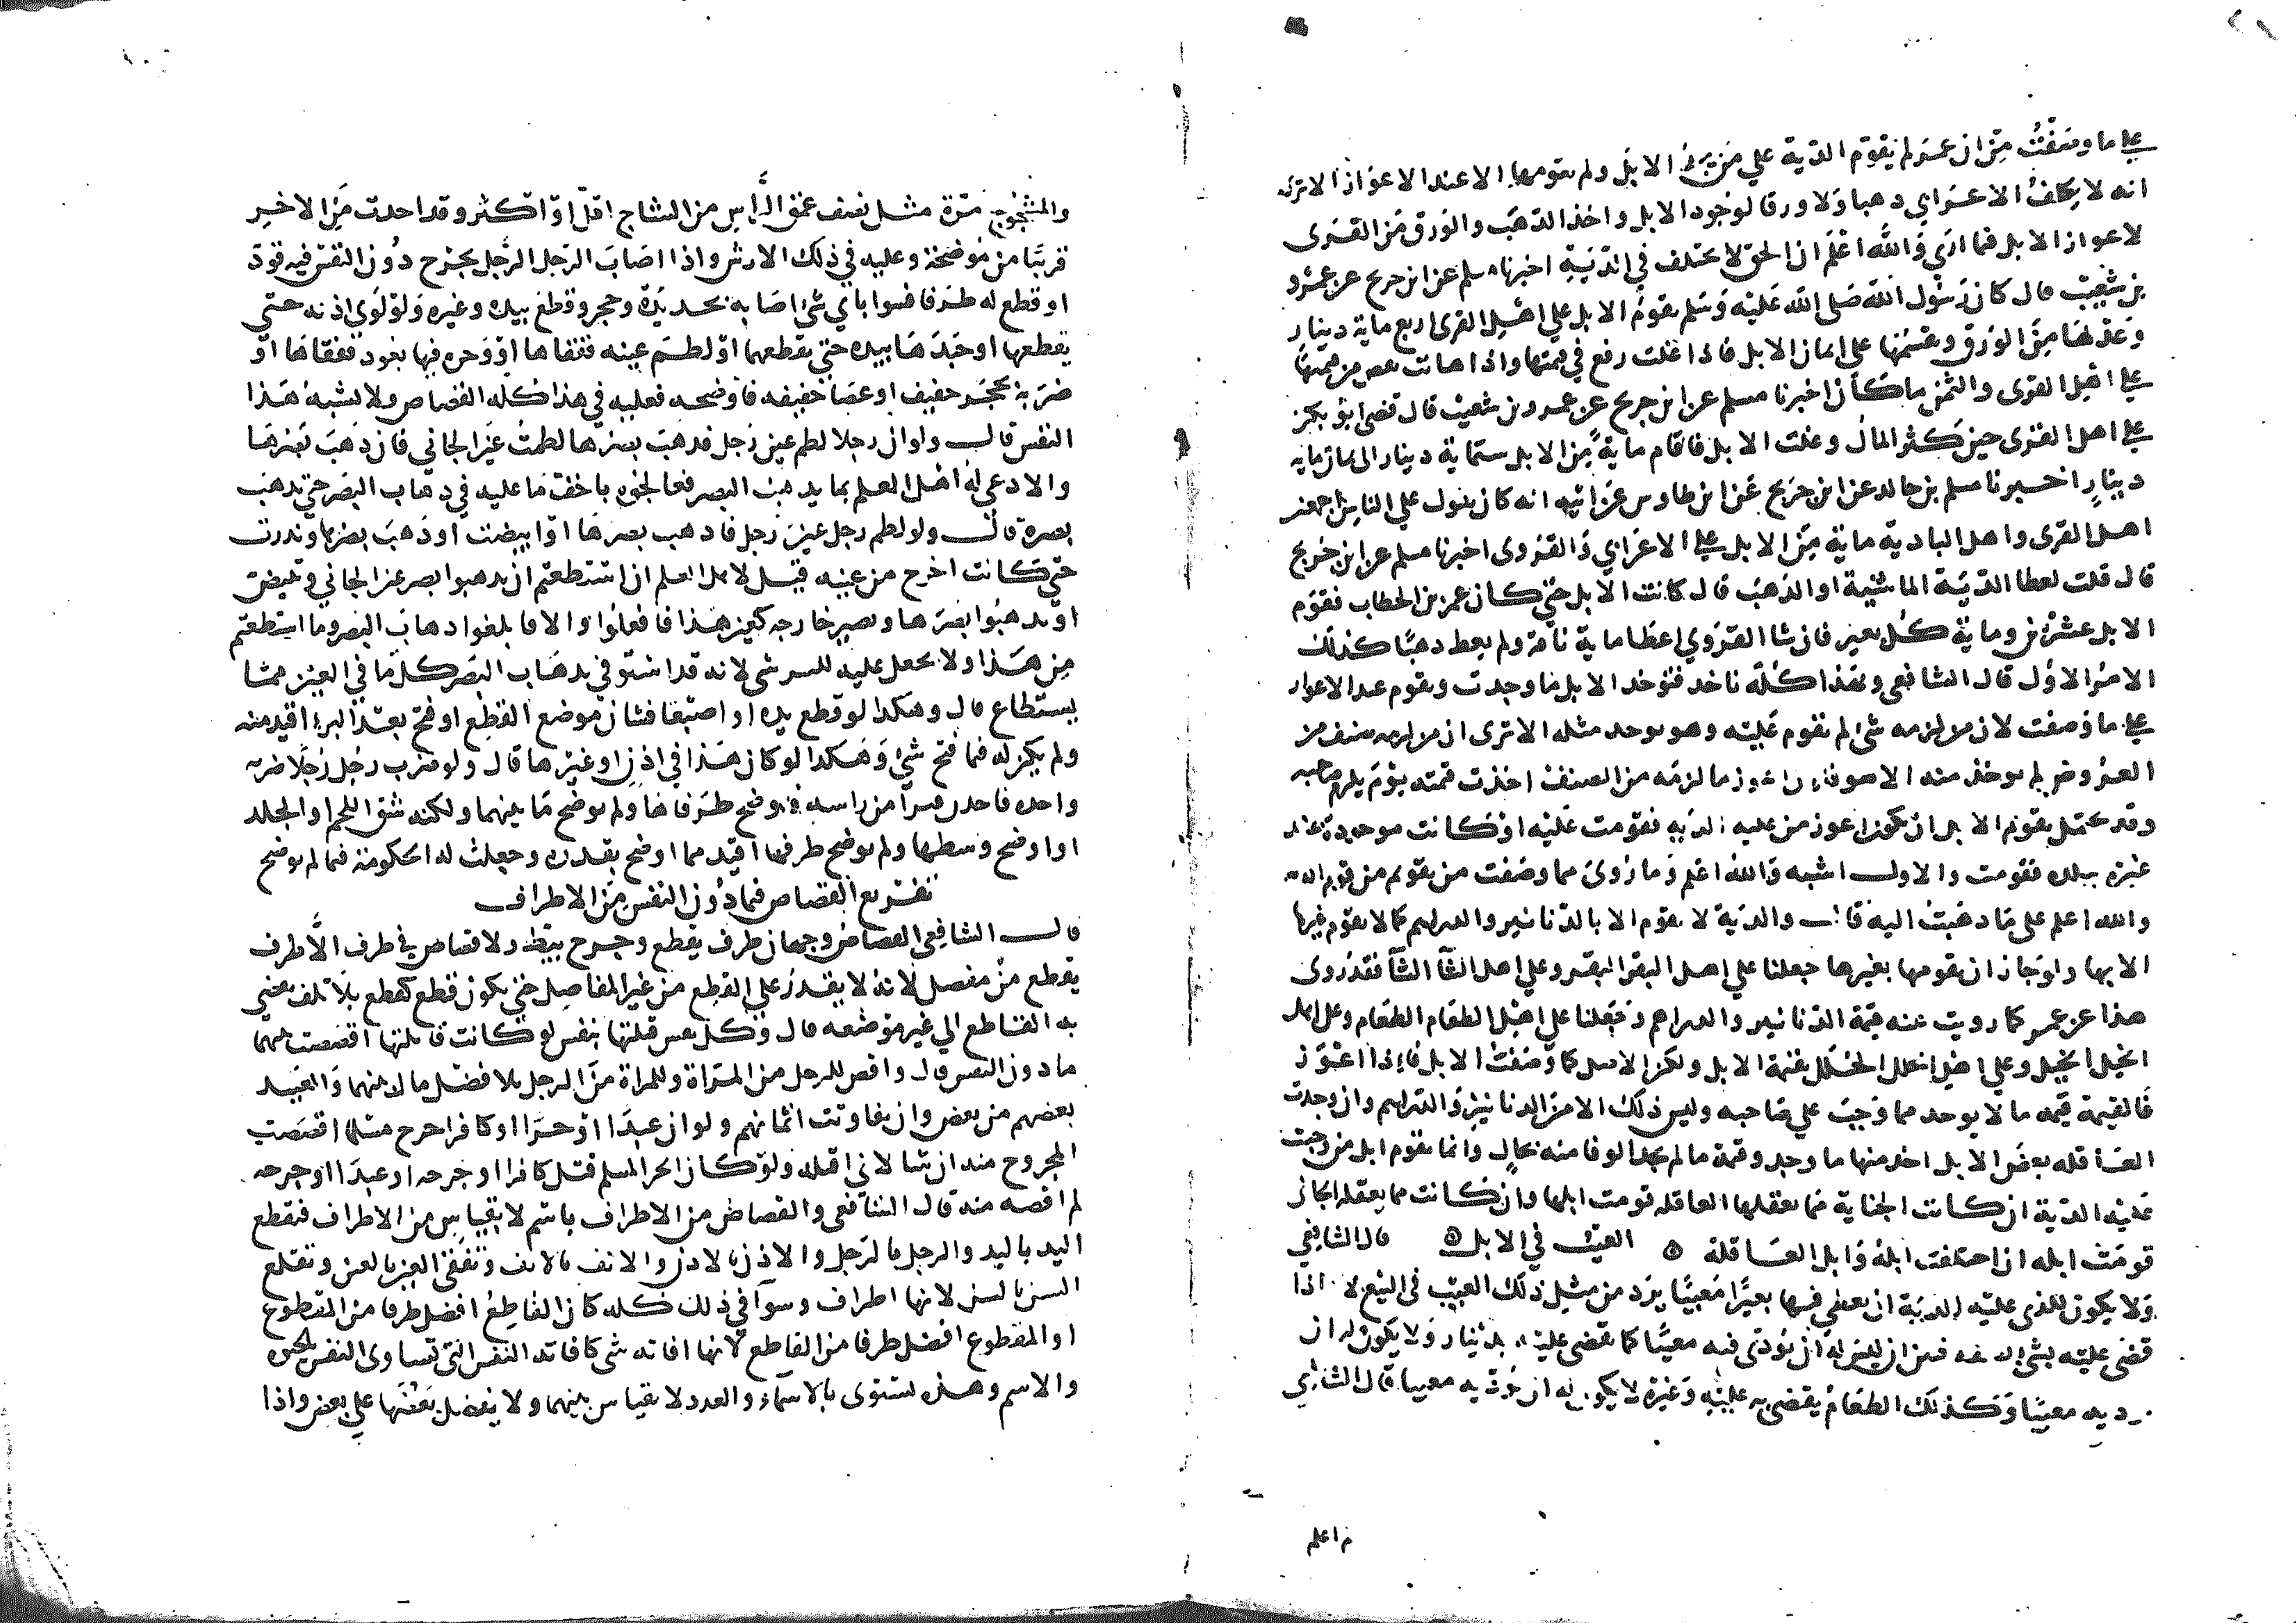 علي ما وصفت من ان عمر لم يقوم الدية علي من يجد الابل ولم يقومها الا عند الاعواز الا ترى
انه لا يكلف الاعرابي ذهبا ولا ورقا لوجود الابل واخذ الذهب والورق من القروى
لاعواز الابل فيما ارى والله اعلم ان الحق لا يختلف في الدية اخبرنا مسلم عن ابن جريج عن عمرو
بن شعيب قال كان رسول الله صلى الله عليه وسلم يقوم الابل علي اهل القرى اربع ماية دينار
وعدلها من الورق ويقسمها على اثمان الابل فاذا غلت رفع في قيمتها واذا هانت نقص من قيمتها
علي اهل القرى والثمن ما كان اخبرنا مسلم عن ابن جريج عن عمرو بن شعيب قال قضى ابو بكر
علي اهل القرى حين كثر المال وغلت الابل فاقام ماية من الابل ستماية دينار الى ثمان ماية
دينار اخبرنا مسلم بن خالد عن ابن جريج عن ابن طاوس عن ابيه انه كان يقول علي الناس اجمعين
اهل القرى واهل البادية ماية من الابل علي الاعرابي والقروى اخبرنا مسلم عن ابن جريج
قال قلت لعطا الدية الماشية او الذهب قال كانت الابل حتى كان عمر بن الخطاب فقوم
الابل عشرين وماية كل بعير فان شا القروي اعطا ماية ناقة ولم يعط ذهبا كذلك
الامر الاول قال الشافعى وبهذا كله ناخذ فتوخذ الابل ما وجدت وتقوم عند الاعواز
علي ما وصفت لان من لزمه شي لم تقوم عليه وهو يوجد مثله الا ترى ان من لزمه صنف من
العروض لم يوخذ منه الا هو فان اعوز ما لزمه من الصنف اخذت قيمته يوم يلزم صاحبه
وقد يحتمل تقويم الابل ان يكون اعوز من عليه الدية فقومت عليه او كانت موجودة عند
غيره ببلده فقومت والاول اشبه والله اعلم وما روى مما وصفت من تقويم من قوم الدية
والله اعلم على ما ذهبت اليه قال والدية لا تقوم الا بالدنانير والدراهم كما لا يقوم غيرها
الا بها ولو جاز ان نقومها بغيرها جعلنا علي اهل البقر البقر وعلي اهل الشا الشا فقد روى
هذا عن عمر كما رويت عنه قيمة الدنانير والدراهم وجعلنا على اهل الطعام الطعام وعلى اهل
الخيل الخيل وعلي اهل الحلل الحلل بقيمة الابل ولكن الاصل كما وصفت الابل فاذا اعوز
فالقيمة قيمه ما لا يوجد مما وجب علي صاحبه وليس ذلك الا من الدنانير والدراهم وان وجدت
العاقله بعض الابل اخذ منها ما وجد وقيمة ما لم يجد الوفا منه بحال وانما تقوم ابل من وجبت
عليه الدية ان كانت الجناية مما تعقلها العاقله قومت ابلها وان كانت مما يعقله الجانى
قومت ابله ان اختلفت ابله وابل العاقلة ۞ العيب في الابل ۞ قال الشافعي
ولا يكون للذى عليه الدية ان يعطي فيها بعيرا معيبا يرد من مثل ذلك العيب في البيع لا اذا
قضى عليه بشي بصفه فبين ان ليس له ان يؤدى فيه معيبا كما يقضى عليه بدينار ولا يكون له ان
يوديه معيبا وكذلك الطعام يقضى به عليه وغيره لا يكون له ان يوديه معيبا قال الشافعي
م اعلم
والمشجوج مرة مثل نصف عنق الراس من الشاج اقل او اكثر وقد اخذت من الاخر
قريبا من موضحة وعليه في ذلك الارش واذا اصاب الرجل الرجل بجرح دون النفس فيه قود
او قطع له طرفا فسوا باي شي اصابه بحديدة وحجر وقطع بيده وغيره ولو لوى اذنه حتى
يقطعها او جبدها بيده حتى يقطعها او لطم عينه ففقاها او وخزه فيها بعود ففقاها او
ضربه بحجر خفيف او عصا خفيفه فاوضحه فعليه في هذا كله القصاص ولا يشبه هذا
النفس قال ولو ان رجلا لطم عين رجل فذهب بصرها لطمت عين الجاني فان ذهب بصرها
والا دعي له اهل العلم بما يذهب البصر فعالجوه باخف ما عليه في ذهاب البصر حتى يذهب
بصره قال ولو لطم رجل عين رجل فاذهب بصرها او ابيضت او ذهب بصرها وندرت
حتى كانت اخرج من عينه قيل لاهل العلم ان استطعتم ان تذهبوا بصر عين الجاني وتبيض
او تذهبوا بصرها وتصير خارجه كعين هذا فافعلوا والا فابلغوا ذهاب البصر وما استطعتم
من هذا ولا يجعل عليه للشين شي لانه قد استوفي بذهاب البصر كل ما في العين مما
يستطاع قال وهكذا لو قطع يده او اصبعا فشان موضع القطع او قبح بعد البر اقيد منه
ولم يكن له فيما قبح شي وهكذا لو كان هذا في اذن او غيرها قال ولو ضرب رجل رجلا ضربه
واحده فاخذ من راسه فاوضح طرفاها ولم يوضح ما بينهما ولكنه شق اللحم او الجلد
او اوضح وسطها ولم يوضح طرفيها اقيد مما اوضح بقدره وجعلت له الحكومة فيما لم يوضح
تفريع القصاص فيما دون النفس من الاطراف
قال الشافعي القصاص وجهان طرف يقطع وجرح يبط ولا قصاص في طرف الا طرف
يقطع من مفصل لانه لا يقدر علي القطع من غير المفاصل حتى يكون قطع كقطع بلا تلف يفضي
به القاطع الي غير موضعه قال وكل نفس قتلتها بنفس لو كانت قاتلتها اقصصت بينهما
ما دون النفس قال واقص للرجل من المراة وللمراة من الرجل بلا فضل مال بينهما والعبيد
بعضهم من بعض وان تفاوتت اثمانهم ولو ان عبدا او حرا او كافرا جرح مسلما اقصصت
المجروح منه ان شا لاني اقتله ولو كان الحر المسلم قتل كافرا او جرحه او عبدا او جرحه
لم اقصه منه قال الشافعى والقصاص من الاطراف باسم لا بقياس من الاطراف فتقطع
اليد باليد والرجل بالرجل والاذن بالاذن والانف بالانف وتفقى العين بالعين وتقلع
السن بالسن لانها اطراف وسوا في ذلك كله كان القاطع افضل طرفا من المقطوع
او المقطوع افضل طرفا من القاطع لانها افاته شي كافاته النفس التي تساوى النفس بالحيوه
والاسم وهذه تستوى بالاسماء والعدد لا بقياس بينهما ولا يفضل بعضها علي بعض واذا